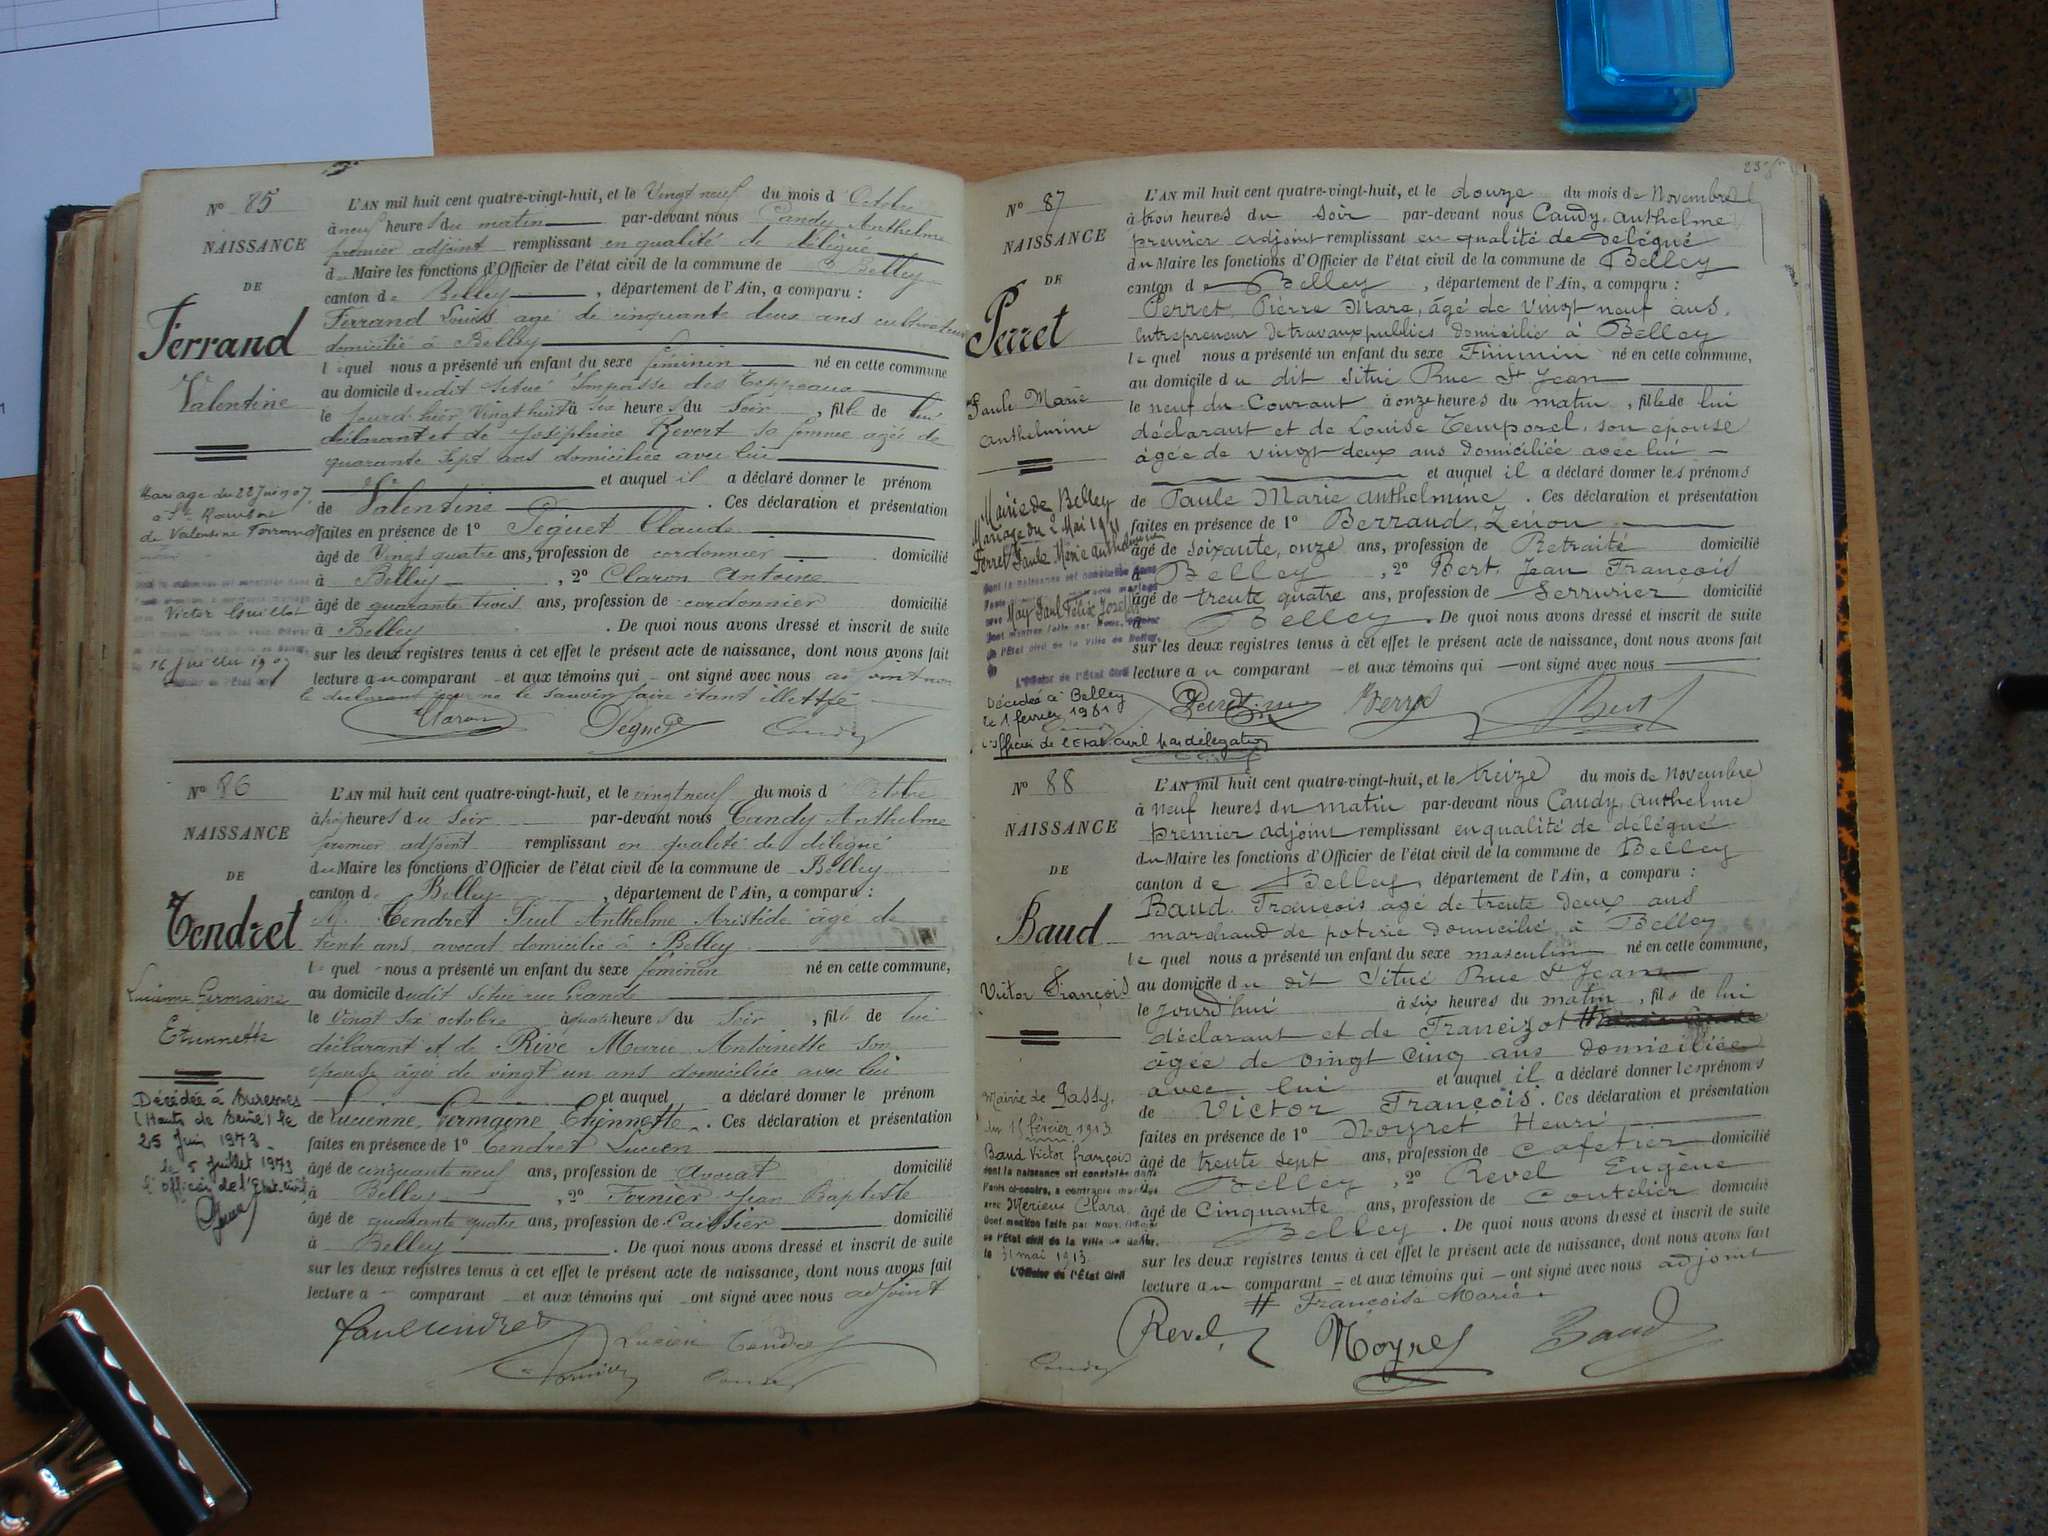 N° 85
NAISSANCE
DE
Ferrand
Valentine
Mariage du 22 Juin 1907
à St
de Valentine Ferrand
Victor Guillot
16 Juillet 1907
L'AN mil huit cent quatre-vingt-huit, et le Vingt neuf du mois d'Octobre
à neuf heures du matin par-devant nous Candy Anthelme
premier adjoint remplissant en qualité de délégué
du Maire les fonctions d'Officier de l'état civil de la commune de Belley
canton de Belley, département de l'Ain, a comparu :
Ferrand Louis âgé de cinquante deux ans cultivateur
domicilié à Belley
lequel nous a présenté un enfant du sexe féminin né en cette commune
au domicile dudit situé Impasse des
le jourd'hier Vingt huit à six heures du Soir, fille de lui
déclarant et de Joséphine Revert sa femme agée de
quarante sept ans domiciliée avec lui
et auquel il a déclaré donner le prénom
de Valentine. Ces déclaration et présentation
faites en présence de 1° Peguet Claude
âgé de Vingt quatre ans, profession de cordonnier domicilié
à Belley, 2° Claron Antoine
âgé de quarante trois ans, profession de cordonnier domicilié
à Belley. De quoi nous avons dressé et inscrit de suite
sur les deux registres tenus à cet effet le présent acte de naissance, dont nous avons fait
lecture au comparant et aux témoins qui ont signé avec nous adjoint non
le déclarant pour ne le savoir faire étant illettré
Claron Peguet Candy
N° 86
NAISSANCE
DE
Tendret
Lucienne Germaine
Etiennette
Décédée à Suresnes
(Hauts de Seine) le
25 Juin 1973
le 5 Juillet 1973
l'officier de l'Etat-civil
L'AN mil huit cent quatre-vingt-huit, et le vingt neuf du mois d'Octobre
heures du soir par-devant nous Candy Anthelme
premier adjoint remplissant en qualité de délégué
du Maire les fonctions d'Officier de l'état civil de la commune de Belley
canton de Belley, département de l'Ain, a comparu :
M. Tendret Paul Anthelme Aristide âgé de
trente ans, avocat domicilié à Belley
lequel nous a présenté un enfant du sexe féminin né en cette commune,
au domicile dudit situé rue Grande
le Vingt six octobre à quatre heures du Soir, fille de lui
déclarant et de Rive Marie Antoinette son
épouse âgée de vingt un ans domiciliée avec lui
et auquel a déclaré donner le prénom
de Lucienne Germaine Etiennette. Ces déclaration et présentation
faites en présence de 1° Tendret Lucien
âgé de cinquante neuf ans, profession de Avocat domicilié
à Belley, 2° Fornier Jean Baptiste
âgé de quarante quatre ans, profession de Caissier domicilié
à Belley. De quoi nous avons dressé et inscrit de suite
sur les deux registres tenus à cet effet le présent acte de naissance, dont nous avons fait
lecture a comparant et aux témoins qui ont signé avec nous adjoint
Paul Tendret Lucien Tendret
Fornier Candy
N° 87
NAISSANCE
DE
Perret
Paule Marie
Anthelmine
Mairie de Belley
Mariage du 2 Mai 1911
Perret Paule Marie Anthelmine
dont la naissance est constatée dans
May Paul Félix Joseph
Dont mention faite par Nous, Officier
de l'Etat civil de la Ville de Belley,
L'Officier de l'Etat Civil
Décédée à Belley
le 1 février 1981
L'officier de l'Etat civil par délégation
L'AN mil huit cent quatre-vingt-huit, et le douze du mois de Novembre
à trois heures du soir par-devant nous Candy, Anthelme
premier adjoint remplissant en qualité de délégué
du Maire les fonctions d'Officier de l'état civil de la commune de Belley
canton de Belley, département de l'Ain, a comparu :
Perret, Pierre Marc, âgé de Vingt neuf ans,
Entrepreneur de travaux publics domicilié à Belley
lequel nous a présenté un enfant du sexe Féminin né en cette commune,
au domicile du dit situé Rue St Jean
le neuf du Courant à onze heures du matin, fille de lui
déclarant et de Louise Temporel, son épouse
âgée de vingt deux ans domiciliée avec lui
et auquel il a déclaré donner les prénoms
de Paule Marie Anthelmine. Ces déclaration et présentation
faites en présence de 1° Berraud, Zénon
âgé de soixante, onze ans, profession de Retraité domicilié
à Belley, 2° Bert, Jean François
âgé de trente quatre ans, profession de Serrurier domicilié
à Belley. De quoi nous avons dressé et inscrit de suite
sur les deux registres tenus à cet effet le présent acte de naissance, dont nous avons fait
lecture au comparant et aux témoins qui ont signé avec nous
Bert
N° 88
NAISSANCE
DE
Baud
Victor François
Mairie de Passy,
du 15 février 1913
Baud Victor François
dont la naissance est constatée dans
l'acte ci-contre, a contracté mariage
avec Mérieux Clara
Dont mention faite par Nous, Officier
de l'Etat civil de la Ville de Belley.
le 31 mai 1913
L'Officier de l'Etat Civil
L'AN mil huit cent quatre-vingt-huit, et le treize du mois de Novembre
à neuf heures du matin par-devant nous Candy, Anthelme
premier adjoint remplissant en qualité de délégué
du Maire les fonctions d'Officier de l'état civil de la commune de Belley
canton de Belley, département de l'Ain, a comparu :
Baud, François agé de trente deux ans
marchand de poterie domicilié à Belley
lequel nous a présenté un enfant du sexe masculin né en cette commune,
au domicile du dit situé Rue St Jean
le jourd'hui à six heures du matin, fils de lui
déclarant et de Francizot #
âgée de vingt cinq ans domiciliée
avec lui et auquel il a déclaré donner les prénoms
de Victor François. Ces déclaration et présentation
faites en présence de 1° Noyret Henri
âgé de trente sept ans, profession de Cafetier domicilié
à Belley, 2° Revel Eugène
âgé de Cinquante ans, profession de Coutelier domicilié
à Belley. De quoi nous avons dressé et inscrit de suite
sur les deux registres tenus à cet effet le présent acte de naissance, dont nous avons fait
lecture au comparant et aux témoins qui ont signé avec nous adjoint
# Françoise Marie.
Revel Noyret Baud
Candy